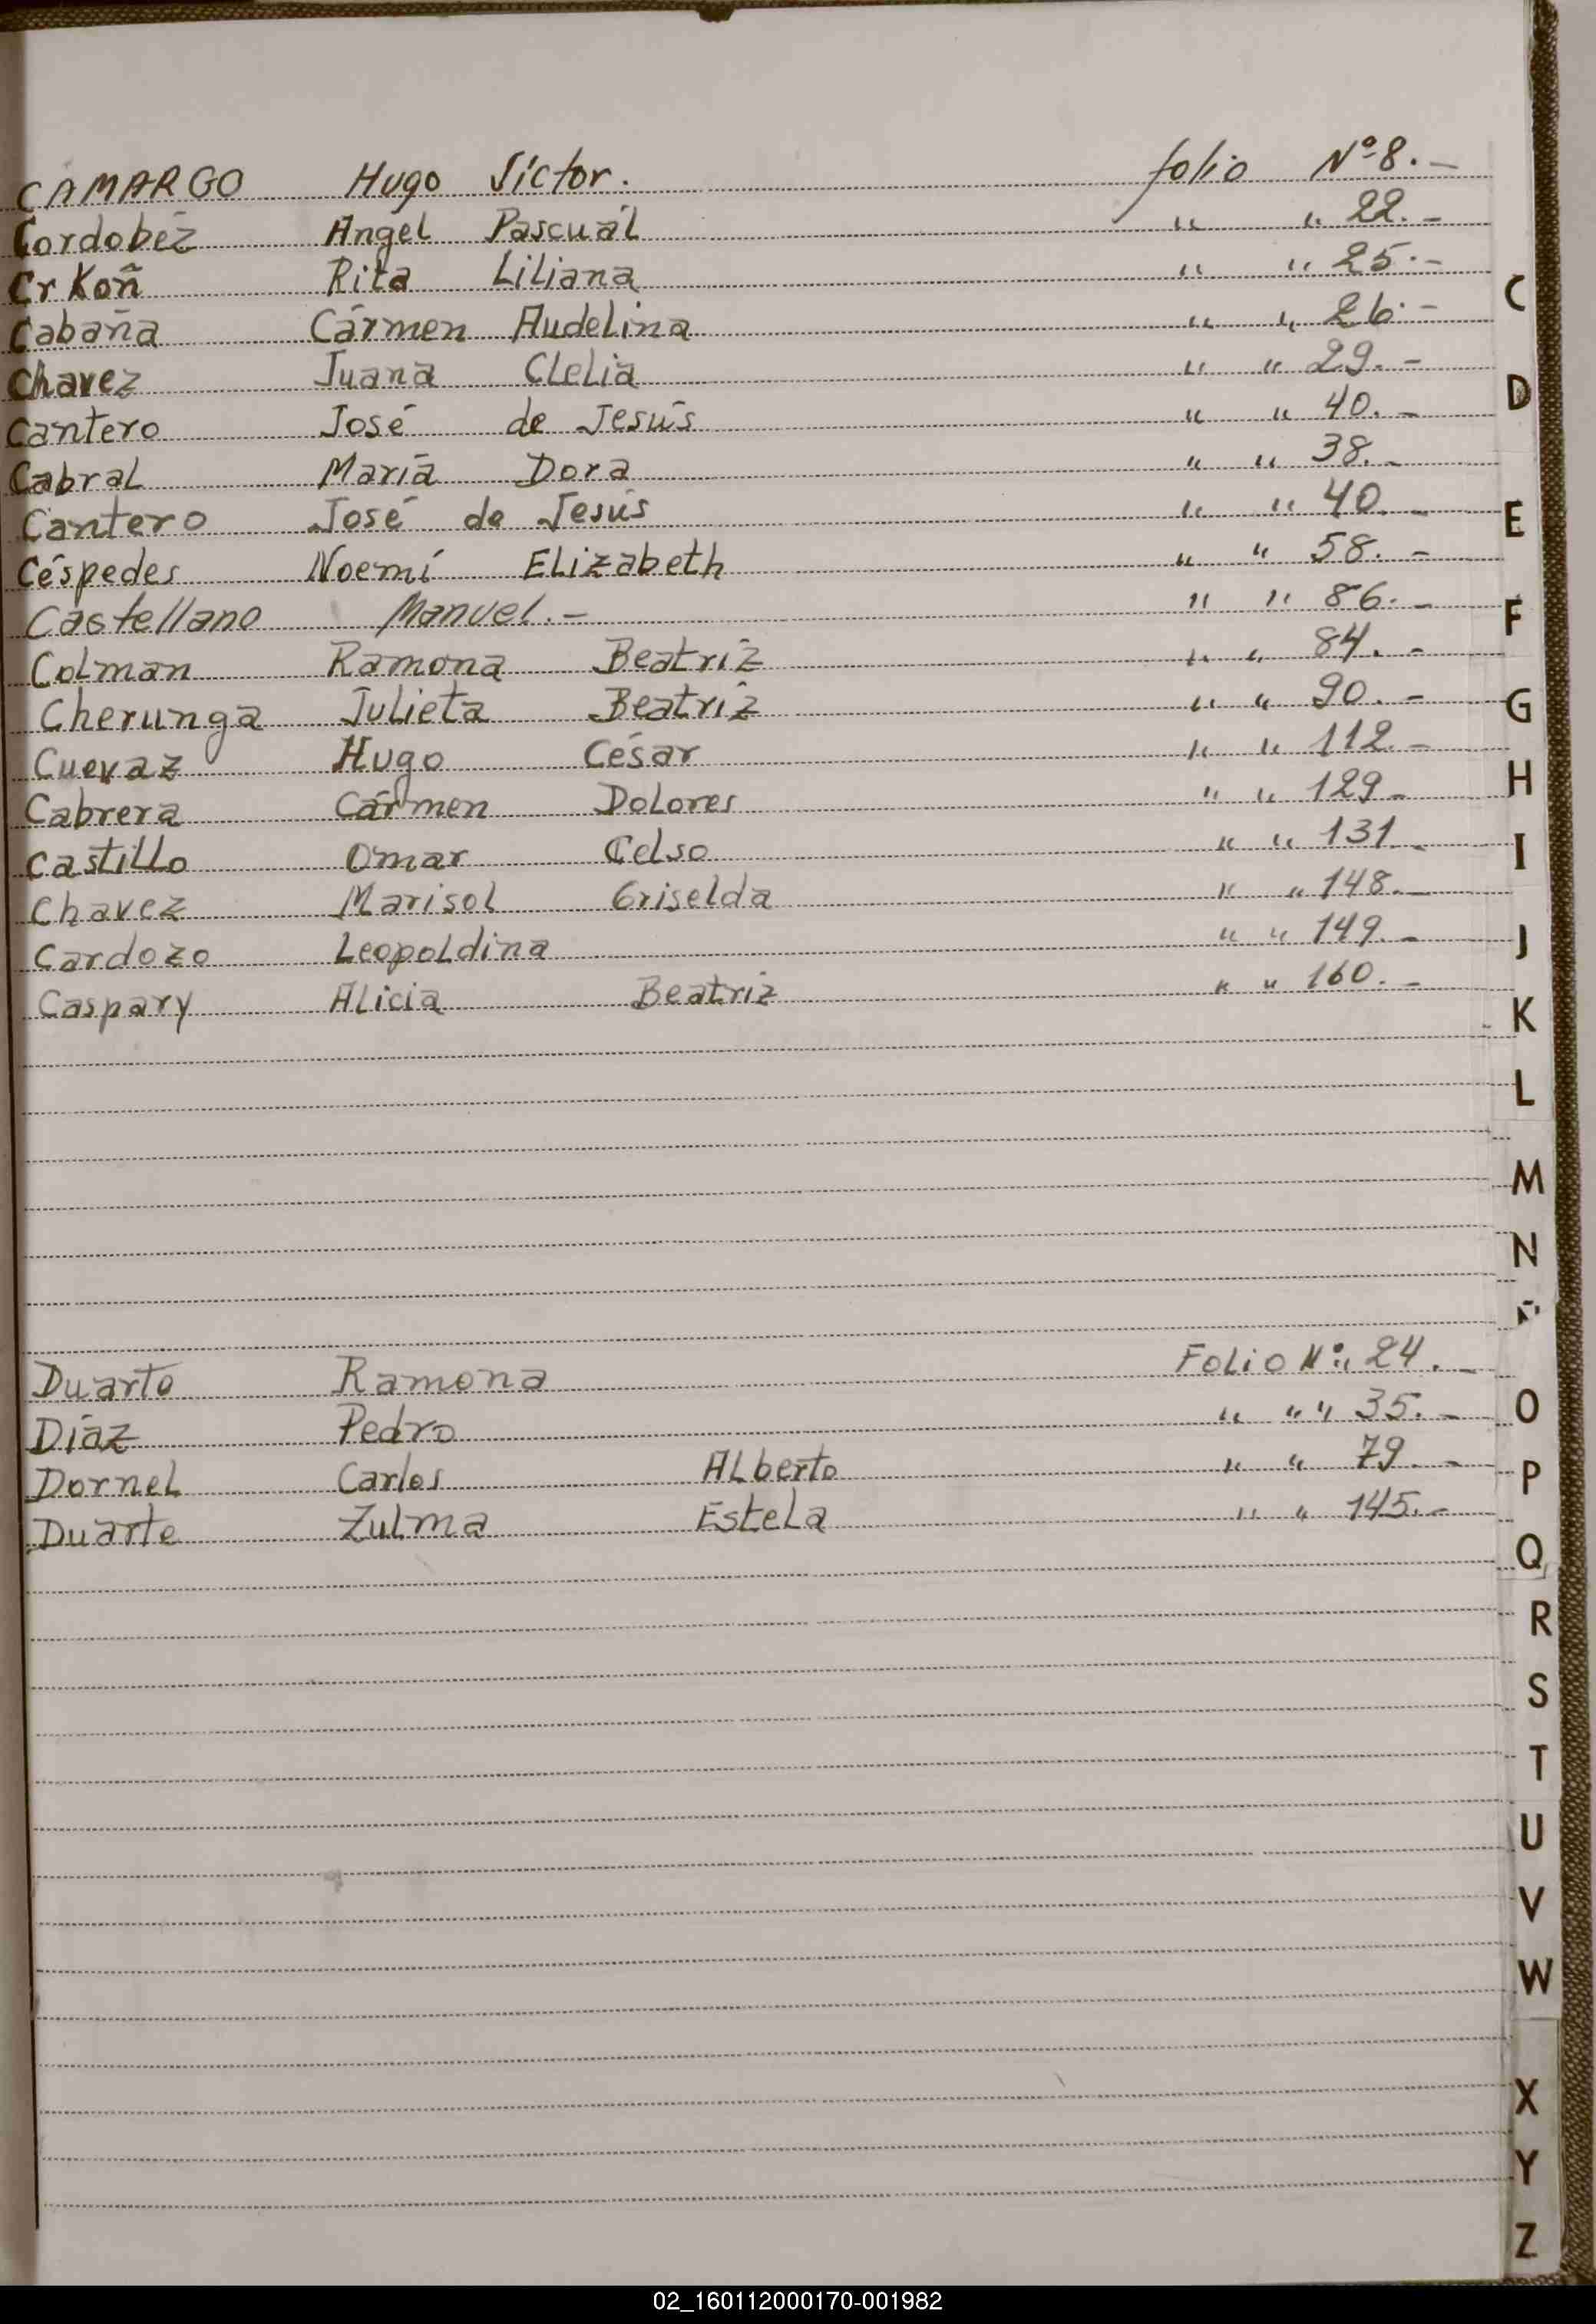 CAMARGO Hugo Víctor. folio Nº 8.-
Cordobéz Angel Pascuál " " 22.-
CrKoñ Rita Liliana " " 25.-
Cabaña Cármen Audelina " " 26.-
Chavez Juana Clelia " " 29.-
Cantero José de Jesús " " 40.-
Cabral María Dora " " 38.-
Cantero José de Jesús " " 40.-
Céspedes Noemí Elizabeth " " 58.-
Castellano Manuel.- " " 86.-
Colman Ramona Beatríz " " 84.-
Cherunga Julieta Beatríz " " 90.-
Cuevaz Hugo César " " 112.-
Cabrera Cármen Dolores " " 129.-
Castillo Omar Celso " " 131.-
Chavez Marisol Griselda " " 148.-
Cardozo Leopoldina " " 149.-
Caspary Alicia Beatriz " " 160.-
Duarte Ramona Folio Nº " 24.-
Díaz Pedro " " " 35.-
Dornel Carlos Alberto " " 79.-
Duarte Zulma Estela " " 145.-
C
D
E
F
G
H
I
J
K
L
M
N
Ñ
O
P
Q
R
S
T
U
V
W
X
Y
Z
02_160112000170-001982